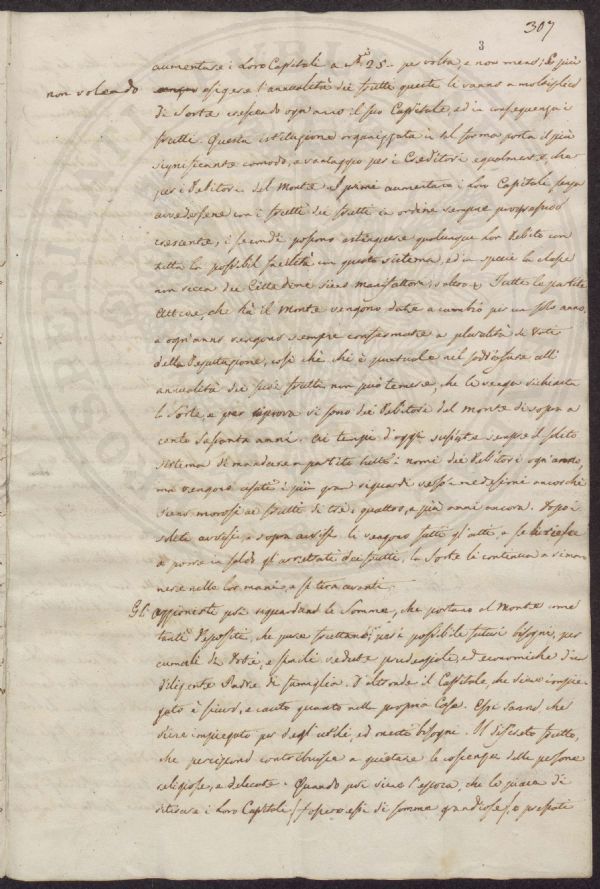 307
3
aumentare i Loro Capitali a 25. per volta, e non meno; e più
non volendo esigere l'annualità dei frutti questi li vanno a moltiplico
di Sorte crescendo ogn'anno il suo Capitale, ed in conseguenza i
frutti. Questa istituzione organizzata in tal forma porta il più
significante comodo, e vantaggio per i Creditori egualmente, che
per i Debitori del Monte. I primi aumentano i loro Capitali senza
avvedersene con i frutti dei frutti in ordine sempre progressivo
crescente, i secondi possono estinguere qualunque lor Debito con
tutta la possibil facilità in questo sistema, ed in specie la classe
non ricca dei Cittadini siano manifattori, o altro. Tutte le partite
attive, che hà il Monte vengono date a cambio per un solo anno,
e ogn'anno vengono sempre confermate a pluralità di Voti
della Deputazione, così chè chi è puntuale nel soddisfare all'
annualità dei suoi frutti non può temere, che li venga richiesta
la Sorte, e per riprova vi sono dei Debitori del monte di sopra a
cento sessanta anni. Ai tempi d'oggi sussiste sempre il solito
sistema di mandare a partito tutti i nomi dei Debitori ogn'anno,
ma vengono usati i più gran riguardi verso i medesimi ancorchè
siano morosi ai frutti di trè, quattro, e più anni ancora. Dopo i
soliti avvisi, e sopra avvisi li vengono fatti gl'atti, e se li riesce
di porre in saldo gl'arretrati dei frutti, la Sorte li continua a rima-
nere nelle lor mani, e si tira avanti.
Gl'azzionisti poi riguardano le Somme, che portano al Monte come
tanti Depositi, che pure fruttano, per i possibili futuri bisogni, per
cumuli di Doti, e simili vedute prudenziali, ed economiche d'un
diligente Padre di famiglia. D'altronde il Capitale, che viene impie-
gato è sicuro, e cauto quanto nella propria Casa. Essi sanno che
viene impiegato per degl'utili, ed onesti bisogni. Il discreto frutto,
che percipono contribuisce a quietare le coscienze delle persone
religiose, e delicate. Quando poi viene l'epoca, che li piaccia di
ritirare i Loro Capitali (fossero essi di somme grandiose) o prestati